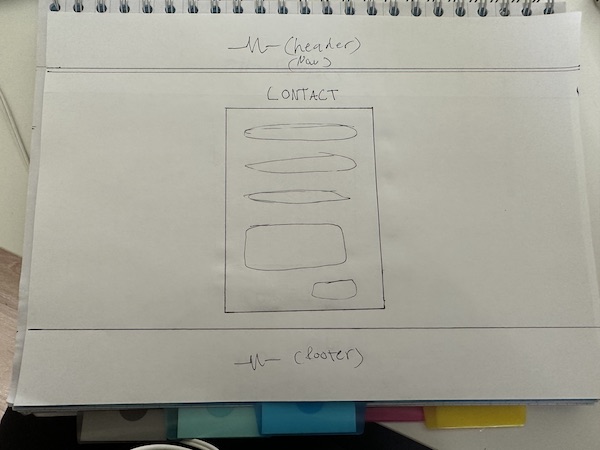 (header)
(Nav)
CONTACT
(footer)